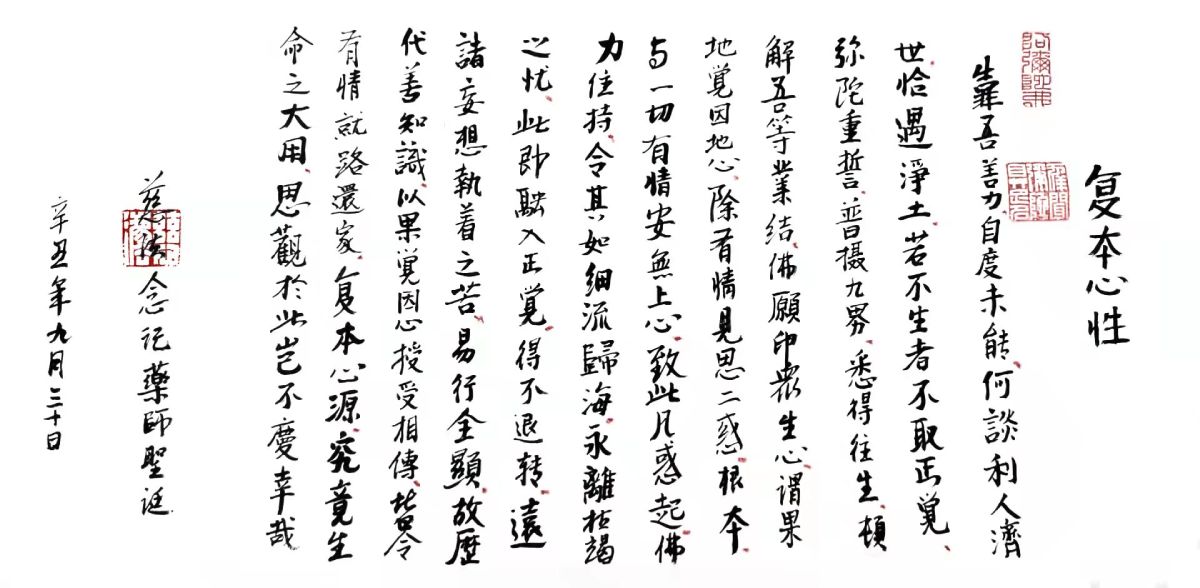 复本心性
生靠吾善力、自度未能、何談利人濟
世、恰遇淨土、若不生者不取正覺、
弥陀重誓、普摄九界、悉得往生、頓
解吾等業结、佛願印衆生心、谓果
地覚因地心、除有情見思二惑根本、
与一切有情安無上心、致此凡惑起佛
力住持、令其如细流歸海、永離枯竭
之忧、此即融入正覚、得不退转、遠
諸妄想執着之苦、易行全顯、故歷
代善知識、以果覚因心授受相傳、皆令
有情就路還家、复本心源、究竟生
命之大用、思觀於此岂不慶幸哉
慈法念记藥師聖诞
辛丑年九月三十日